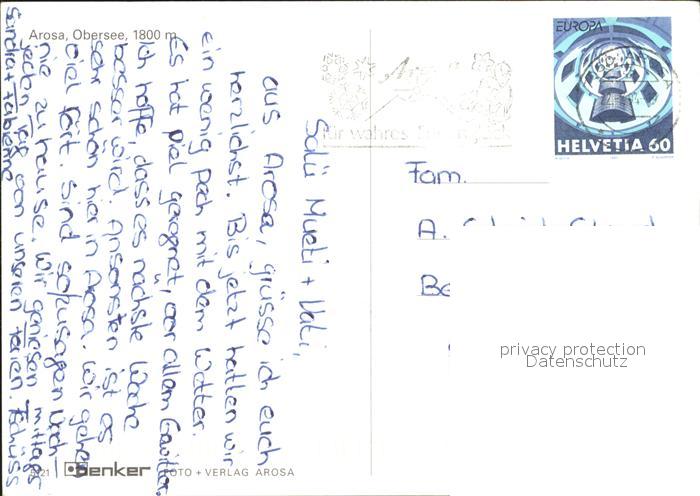 Arosa, Obersee, 1800 m
EUROPA
HELVETIA 60
Arosa
für wahres
Fam.
A.
Be
privacy protection
Datenschutz
Salü Mueti + Vati,
aus Arosa, grüsse ich euch
herzlichst. Bis jetzt hatten wir
ein wenig pech mit dem Wetter.
Es hat viel geregnet, vor allem Gewitter.
Ich hoffe, dass es nächste Woche
besser wird. Ansonsten ist es
sehr schön hier in Arosa. Wir gehen
viel fort. Sind sozusagen nach-
mittags
nie zuhause. Wir geniesen
jeden Tag von unseren ferien. Tschüss
Sandra + Fabienne
5121 Denker FOTO + VERLAG AROSA